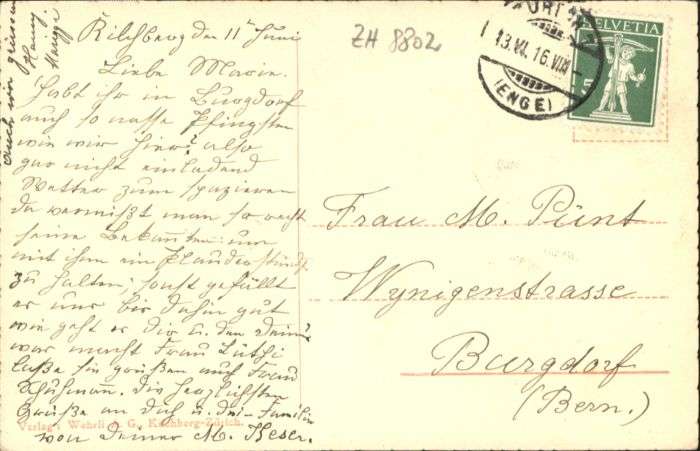 Kilchberg den 11ten Juni
Liebe Marie.
Habt ihr in Burgdorf
auch so nasse Pfingsten
wie wir hier? also
gar nicht einladend
Wetter zum spazieren
da vermißt man so recht
seine Bekannten um
mit ihm ein Plauderstündch
zu halten; sonst gefällt
es uns bis dahin gut
wie geht es Dir u. den Deinen?
was macht Frau Lüthi
laße sie grüßen auch Frau
Die herzlichsten
Grüße an Dich u. die Familie
von Deiner M. Keser.
auch ein
Hanny
ZH 8802
HELVETIA
5
13.VI.16.VIII
(ENGE)
Frau M. Pünt
Wynigenstrasse
Burgdorf
(Bern.)
Verlag: Wehrli A. G., Kilchberg-Zürich.